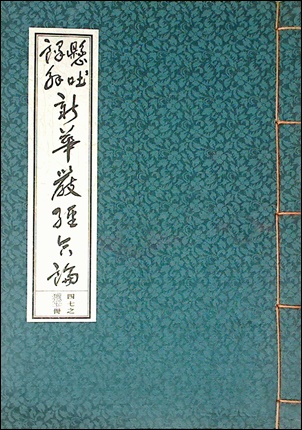 懸吐
譯解
新華嚴經合論
四七之
冊